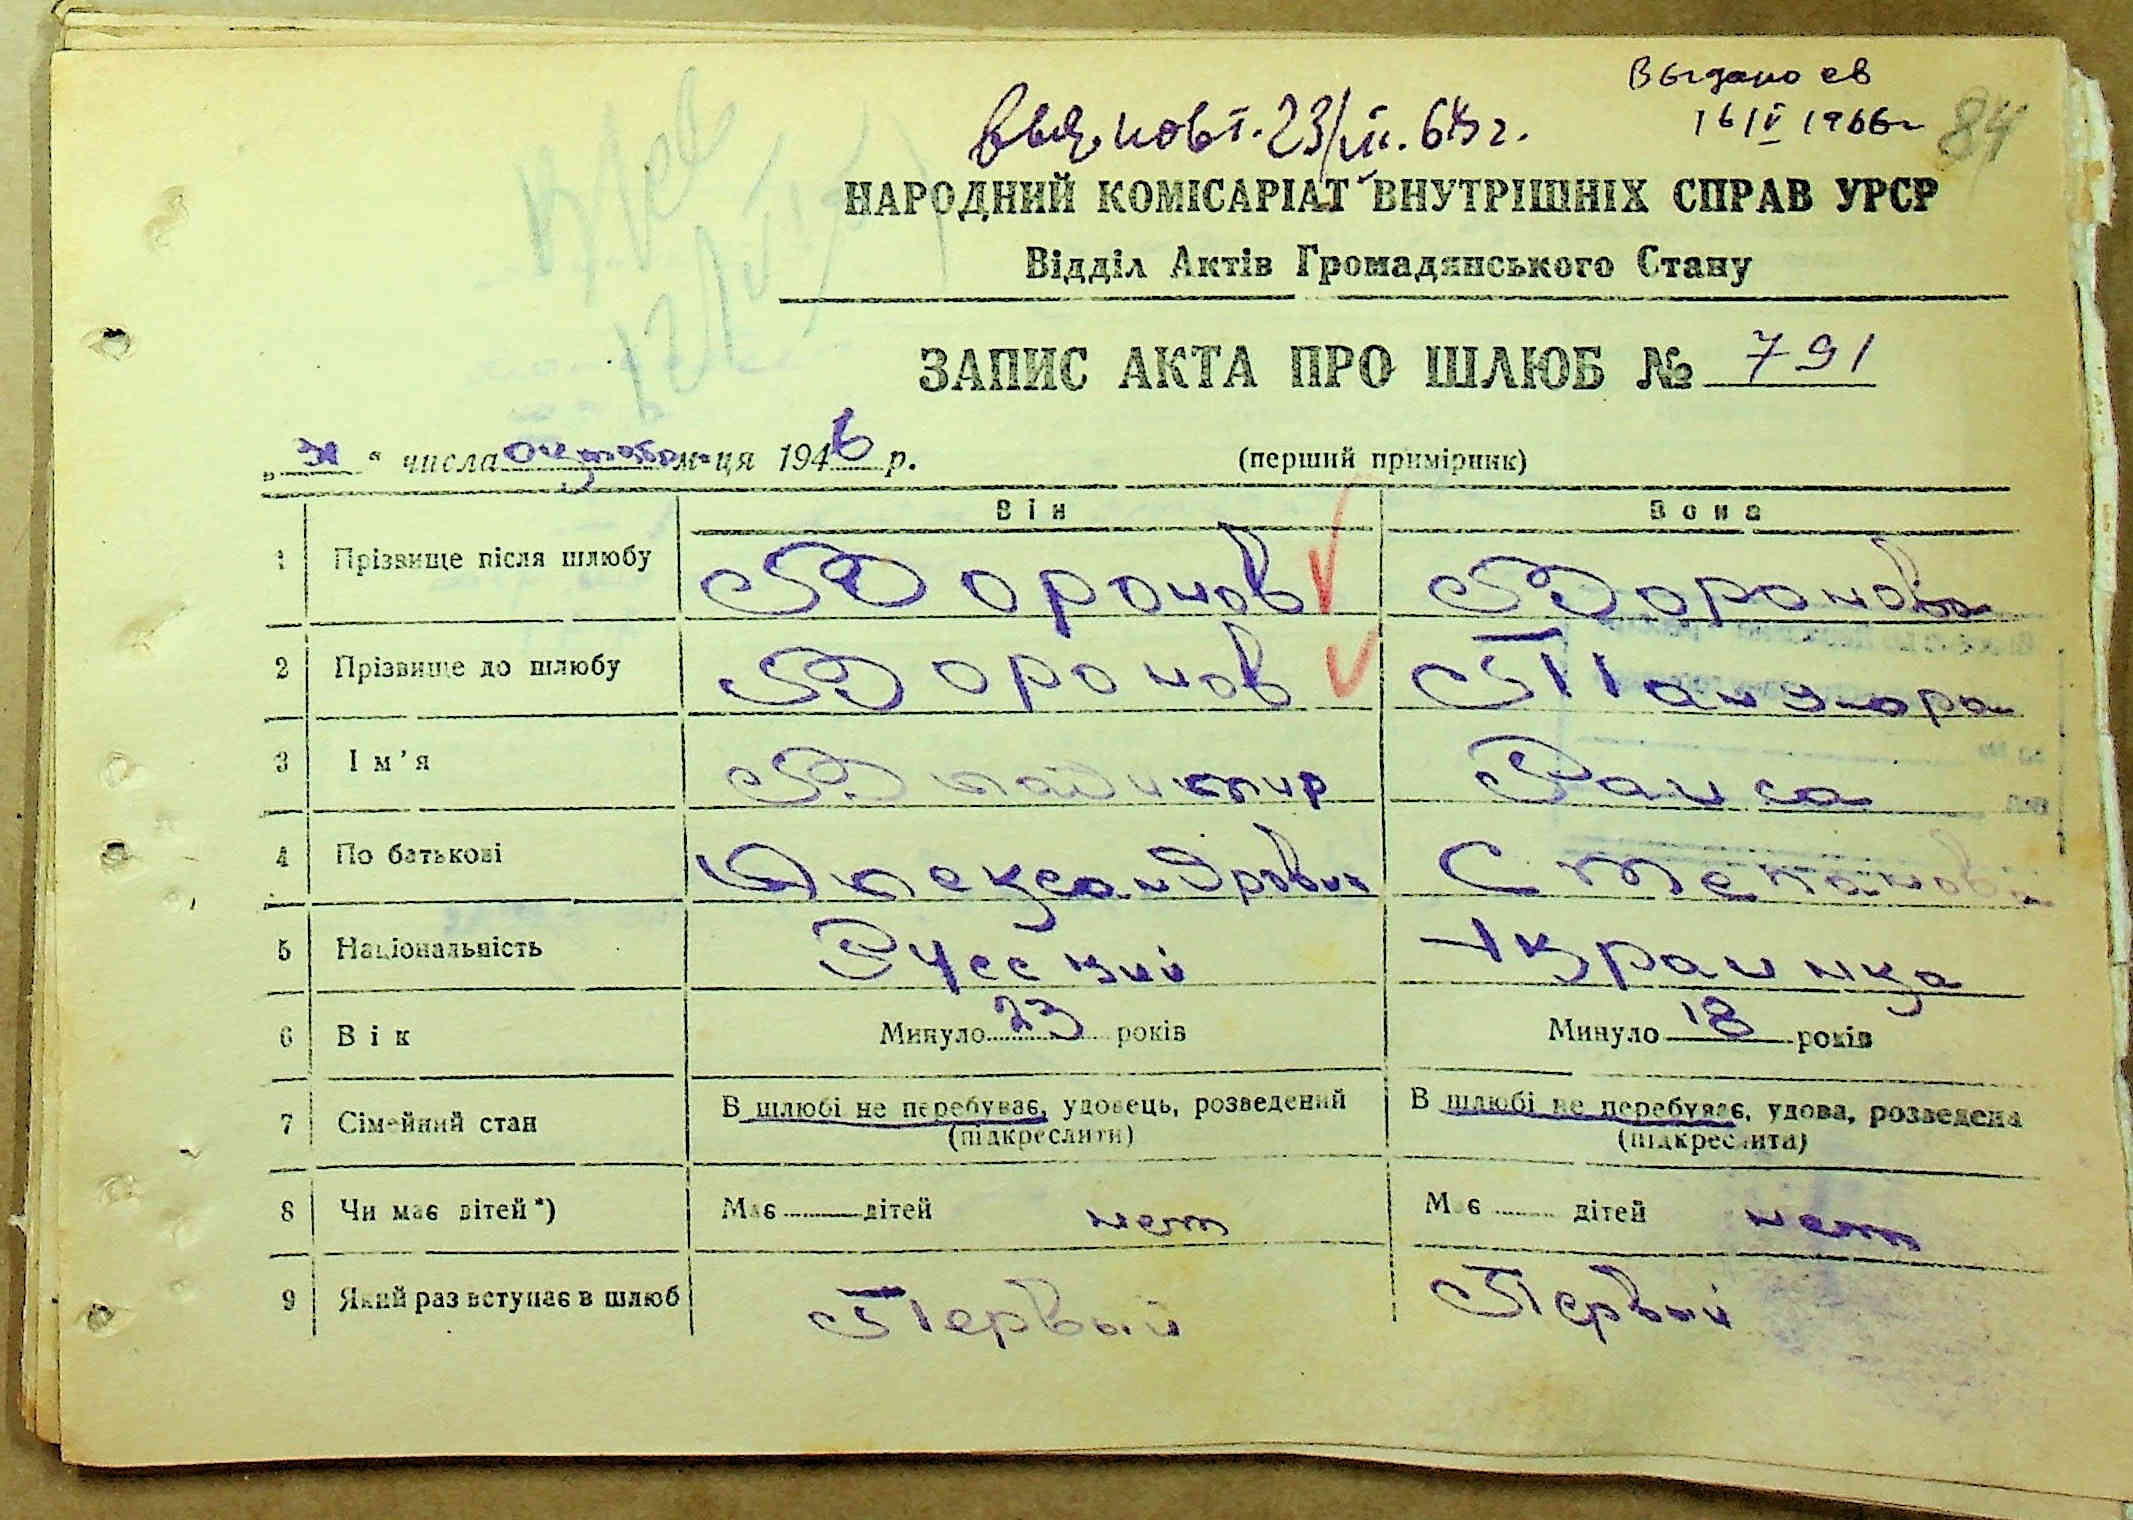 Выдано св
16/V 1966г
84
выд. повт. 23/VII. 64г.
НАРОДНИЙ КОМІСАРІАТ ВНУТРІШНІХ СПРАВ УРСР
Відділ Актів Громадянського Стану
ЗАПИС АКТА ПРО ШЛЮБ № 791
„31“ числа октября м-ця 1946 р.
(перший примірник)
Він Вона
1 Прізвище після шлюбу Воронов Воронова
2 Прізвище до шлюбу Воронов
3 Ім'я Владимир Раиса
4 По батькові Александрович Степановна
5 Національність Русский Украинка
6 Вік Минуло 23 років Минуло 18 років
7 Сімейний стан В шлюбі не перебуває, удовець, розведений В шлюбі не перебуває, удова, розведена
(підкреслити) (підкреслити)
8 Чи має дітей*) Має дітей нет Має дітей нет
9 Який раз вступає в шлюб Первый Первый